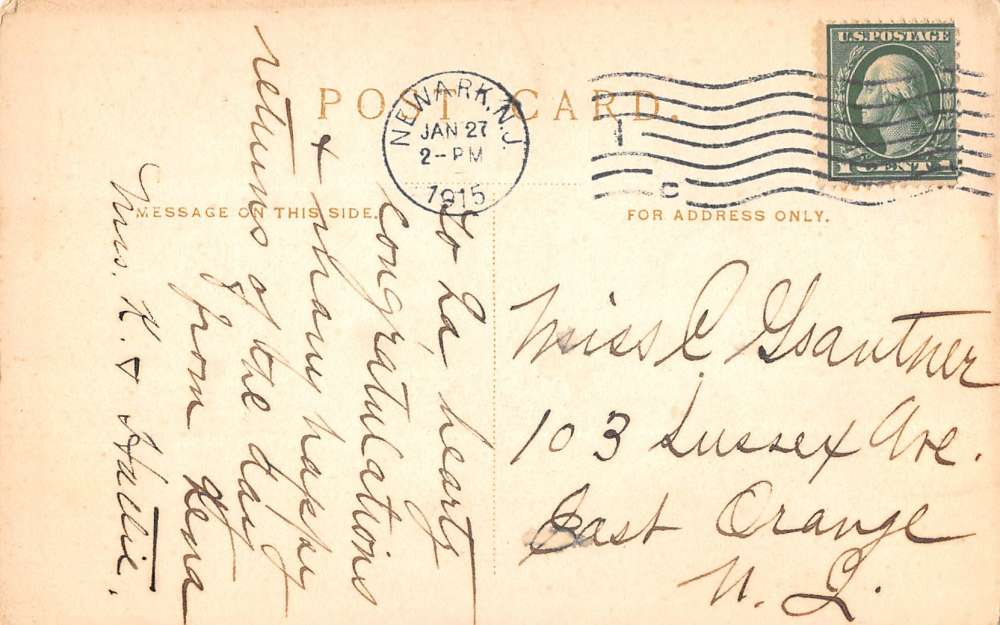 POST CARD.
NEWARK, N.J.
JAN 27
2-PM
1915
U.S. POSTAGE
1 CENT 1
1
C
MESSAGE ON THIS SIDE.
FOR ADDRESS ONLY.
hearty
Congratulations
& many happy
returns of the day
from Lena
Mrs. K. & Hattie.
Miss C
103 Sussex Ave.
East Orange
N. J.